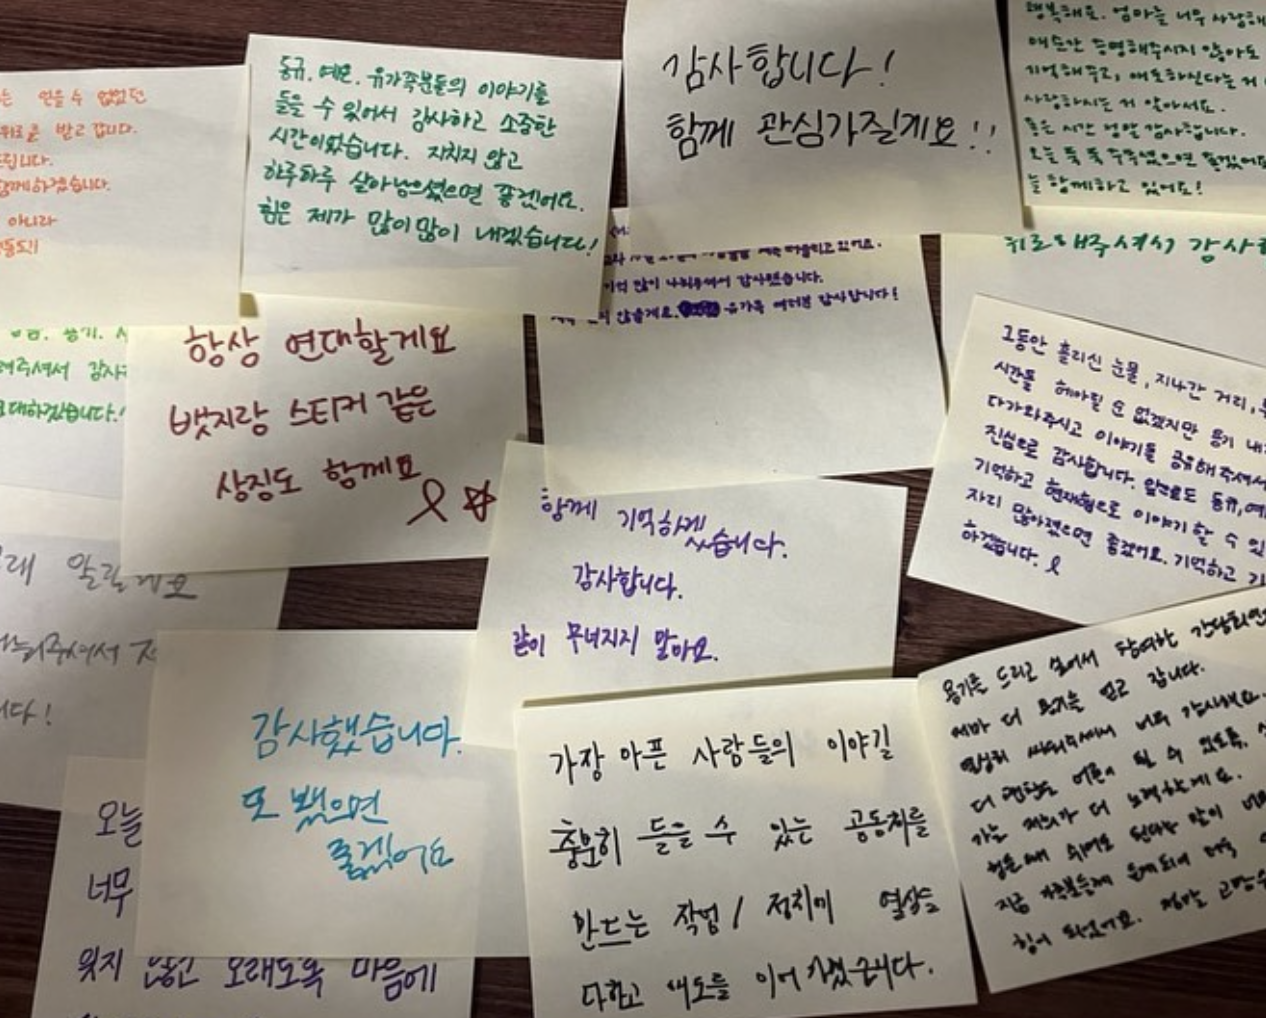 는 얻을 수 없었던
위로를 받고 갑니다.
드립니다.
함께하겠습니다.
아니라
동규, 예은, 유가족분들의 이야기를
들을 수 있어서 감사하고 소중한
시간이었습니다. 지치지 않고
하루하루 살아남으셨으면 좋겠어요.
힘은 제가 많이많이 내겠습니다!
감사합니다!
함께 관심가질게요!!
행복해요. 엄마를 너무 사랑해
매순간 증명해주시지 않아도
기억해주고, 애도하신다는 거
사랑하시는 거 알아서요.
좋은 시간 정말 감사합니다.
오늘 푹 푹 주무셨으면 좋겠어요
늘 함께하고 있어요!
위로해주셔서 감사
많이 나눠주셔서 감사했습니다.
않을게요. 유가족 여러분 감사합니다!
용기.
주셔서 감사
연대하겠습니다.
항상 연대할게요
뱃지랑 스티커 같은
상징도 함께요
함께 기억하겠습니다.
감사합니다.
같이 무너지지 말아요.
그동안 흘리신 눈물, 지나간 거리,
시간을 헤아릴 순 없겠지만 용기 내
다가와주시고 이야기를 공유해주셔서
진심으로 감사합니다. 앞으로도 동규, 예
기억하고 현재형으로 이야기 할 수 있
자리 많아졌으면 좋겠어요. 기억하고
하겠습니다.
알릴게요
나눠주셔서
니다!
감사했습니다.
또 뵀으면
좋겠어요
오늘
너무
잊지 않고 오래도록 마음에
가장 아픈 사람들의 이야길
충분히 들을 수 있는 공동체를
만드는 작업 / 정치에 열심을
다하고 애도를 이어가겠습니다.
용기를 드리고 싶어서 참여한 간담회인
더 용기를 얻고 갑니다.
너무 감사해요.
더 괜찮은 어른이 될 수 있도록,
가는 저희가 더 노력할게요.
힘들 때 위로도 된다는 말이 너무
지금 가족분들께
힘이 되었어요. 정말 고맙습